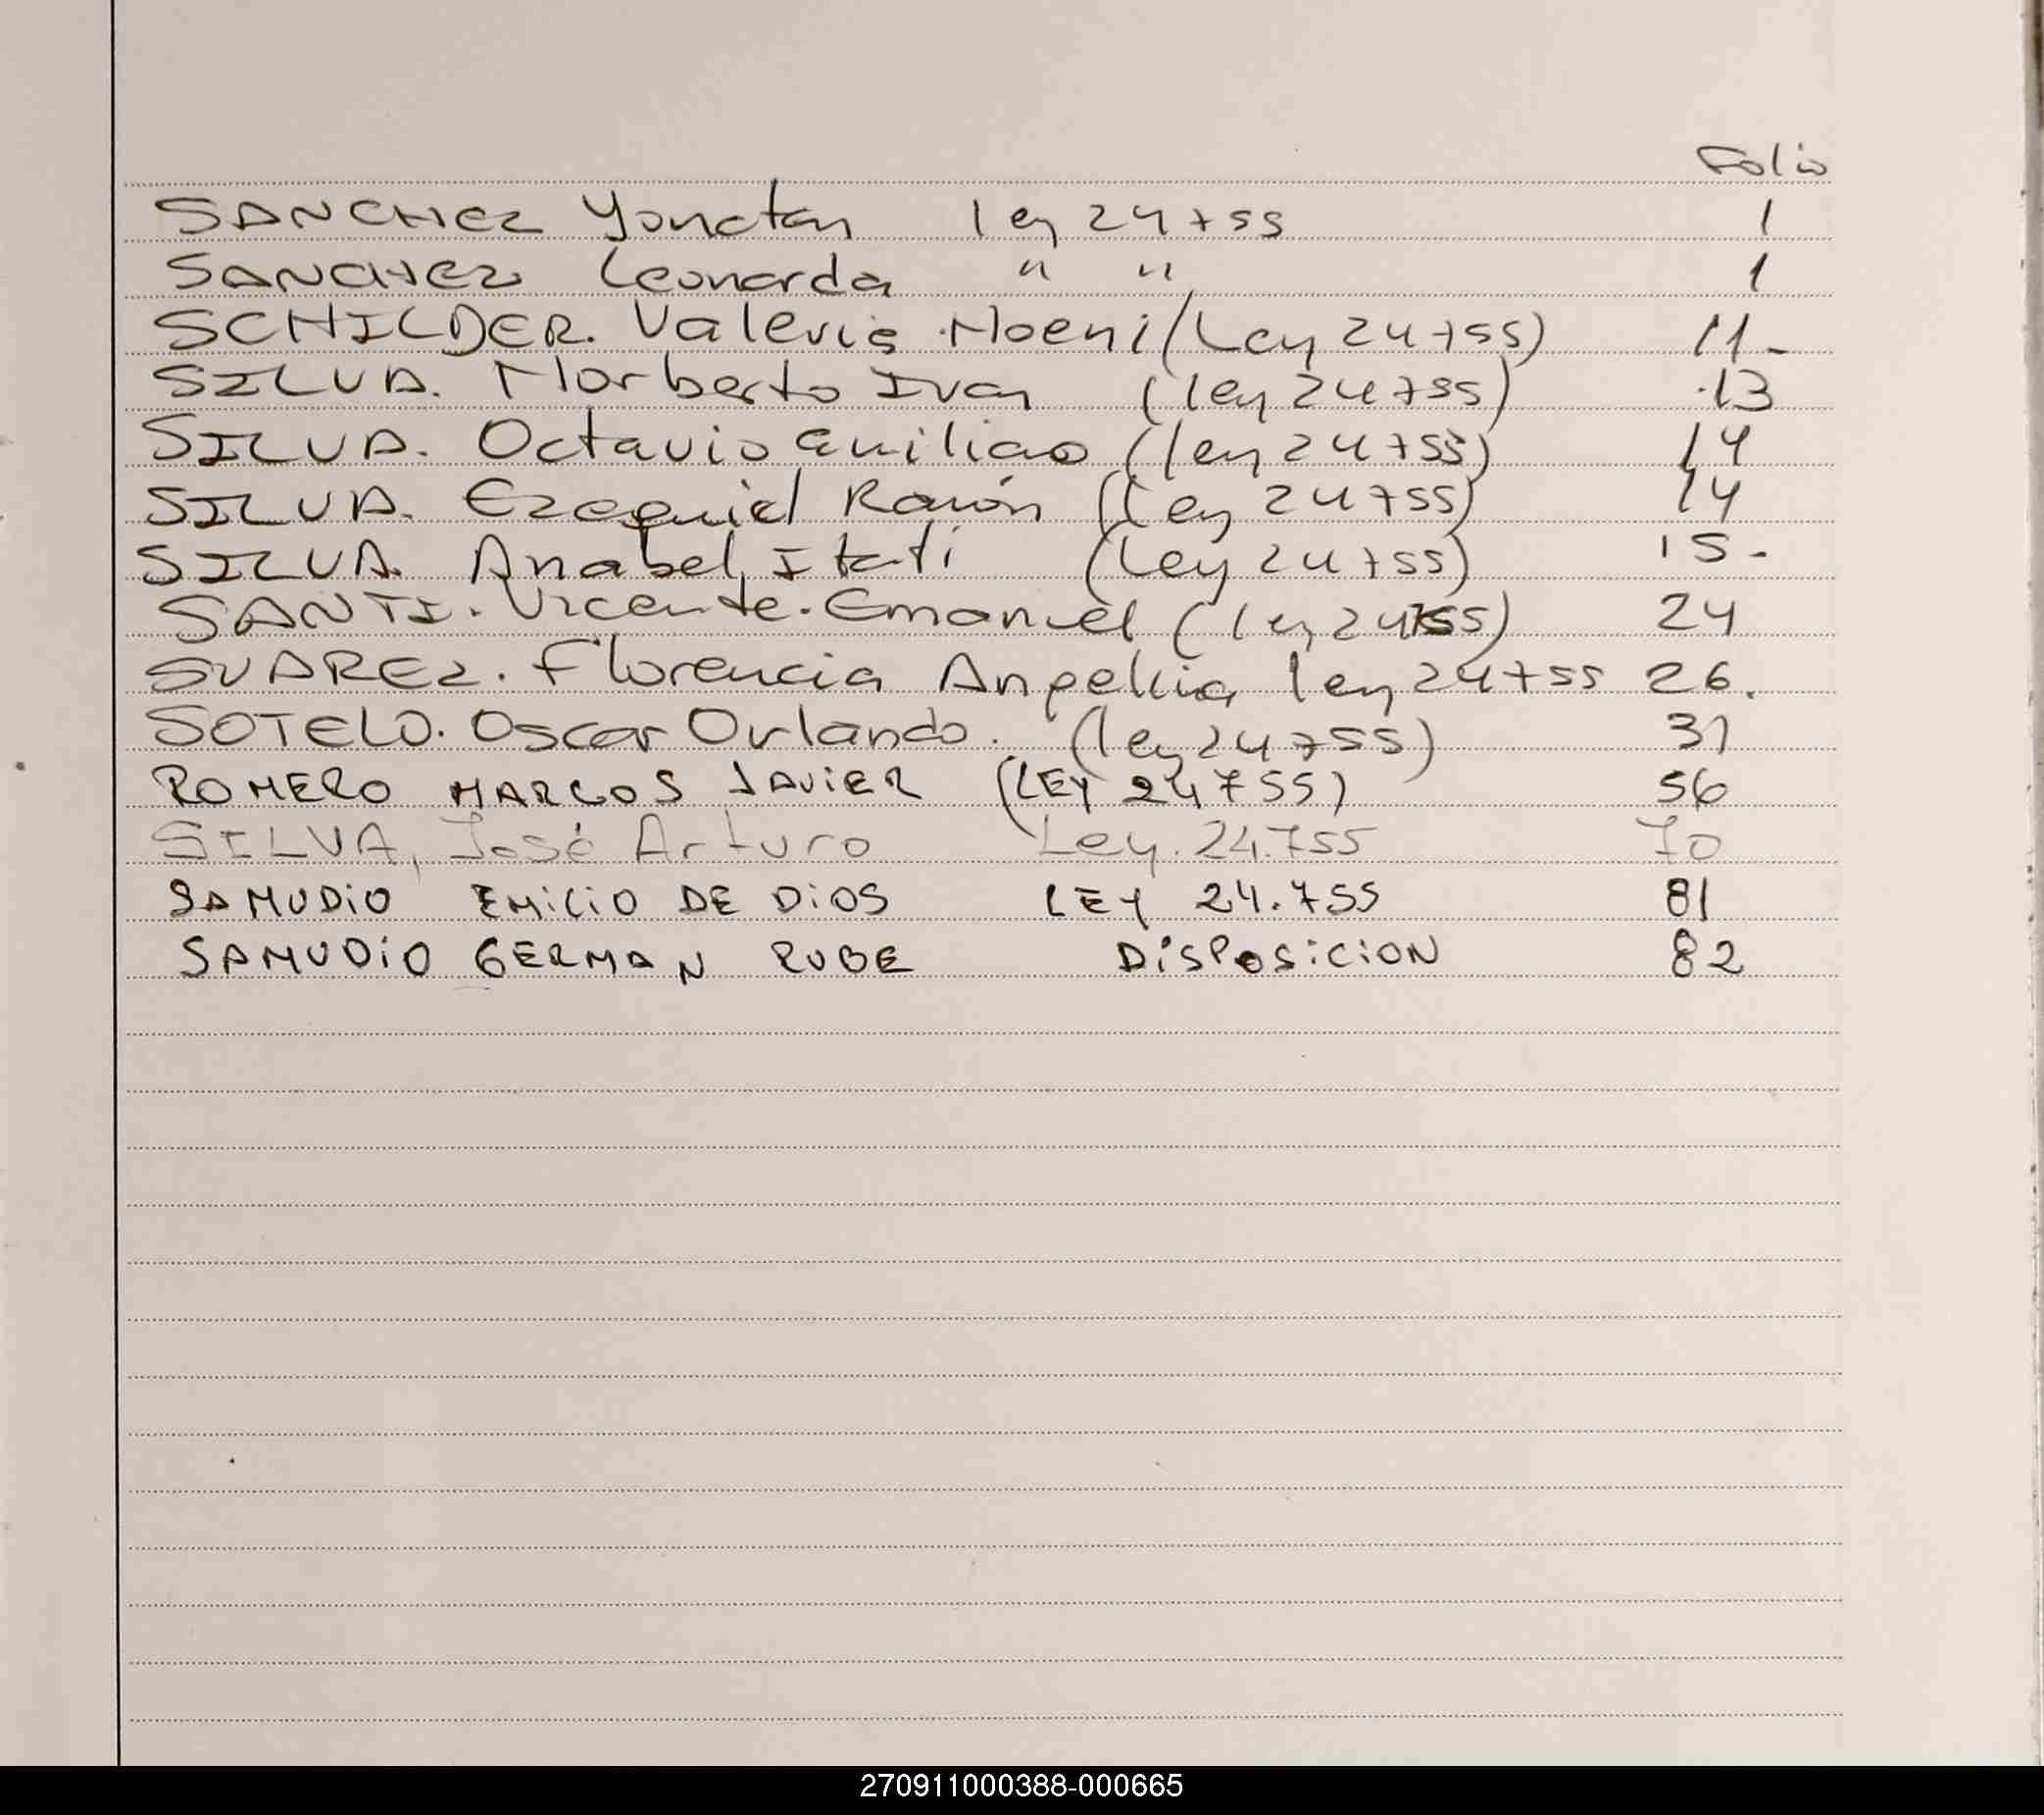 Folio
SANCHEZ Yonatan ley 24755 1
SANCHEZ Leonarda " " 1
SCHILDER. Valeria Noemi (Ley 24755) 11-
SILVA. Norberto Ivan (ley 24755) 13
SILVA. Octavio Emiliano (ley 24755) 14
SILVA. Ezequiel Ramón (Ley 24755) 14
SILVA. Anabel Itati (Ley 24755) 15-
SANTI. Vicente. Emanuel (ley 24755) 24
SUAREZ. Florencia Angelica ley 24755 26.
SOTELO. Oscar Orlando. (ley 24755) 31
ROMERO MARCOS JAViER (LEY 24755) 56
SILVA, José Arturo Ley. 24.755 70
SAMUDiO EMiLiO DE DiOS LEY 24.755 81
SAMUDiO GERMAN RUBE DiSPOSiCiON 82
270911000388-000665